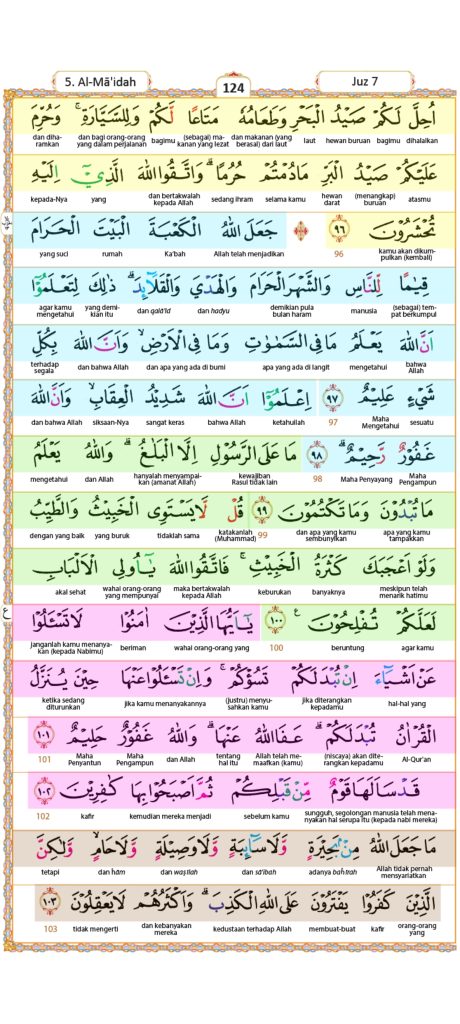 5. Al-Mā'idah
124
Juz 7
اُحِلَّ لَكُمْ صَيْدُ الْبَحْرِ وَطَعَامُهٗ مَتَاعًا لَّكُمْ وَلِلسَّيَّارَةِ ۚ وَحُرِّمَ
dihalalkan bagimu hewan buruan laut dan makanan (yang berasal) dari laut (sebagai) makanan yang lezat bagimu dan bagi orang-orang yang dalam perjalanan dan diharamkan
عَلَيْكُمْ صَيْدُ الْبَرِّ مَا دُمْتُمْ حُرُمًا ۗ وَاتَّقُوا اللّٰهَ الَّذِيْٓ اِلَيْهِ
atasmu (menangkap) buruan hewan darat selama kamu sedang ihram dan bertakwalah kepada Allah yang kepada-Nya
تُحْشَرُوْنَ ٩٦ جَعَلَ اللّٰهُ الْكَعْبَةَ الْبَيْتَ الْحَرَامَ
kamu akan dikumpulkan (kembali) 96 Allah telah menjadikan Ka'bah rumah yang suci
قِيٰمًا لِّلنَّاسِ وَالشَّهْرَ الْحَرَامَ وَالْهَدْيَ وَالْقَلَاۤىِٕدَ ۗ ذٰلِكَ لِتَعْلَمُوْٓا
(sebagai) tempat berkumpul manusia demikian pula bulan haram dan hadyu dan qalā'id yang demikian itu agar kamu mengetahui
اَنَّ اللّٰهَ يَعْلَمُ مَا فِى السَّمٰوٰتِ وَمَا فِى الْاَرْضِۙ وَاَنَّ اللّٰهَ بِكُلِّ
bahwa Allah mengetahui apa yang ada di langit dan apa yang ada di bumi dan bahwa Allah terhadap segala
شَيْءٍ عَلِيْمٌ ٩٧ اِعْلَمُوْٓا اَنَّ اللّٰهَ شَدِيْدُ الْعِقَابِۙ وَاَنَّ اللّٰهَ
sesuatu Maha Mengetahui 97 ketahuilah bahwa Allah sangat keras siksaan-Nya dan bahwa Allah
غَفُوْرٌ رَّحِيْمٌ ۗ ٩٨ مَا عَلَى الرَّسُوْلِ اِلَّا الْبَلٰغُ ۗ وَاللّٰهُ يَعْلَمُ
Maha Pengampun Maha Penyayang 98 kewajiban Rasul tidak lain hanyalah menyampaikan (amanat Allah) dan Allah mengetahui
مَا تُبْدُوْنَ وَمَا تَكْتُمُوْنَ ٩٩ قُلْ لَّا يَسْتَوِى الْخَبِيْثُ وَالطَّيِّبُ
apa yang kamu tampakkan dan apa yang kamu sembunyikan 99 katakanlah (Muhammad) tidaklah sama yang buruk dengan yang baik
وَلَوْ اَعْجَبَكَ كَثْرَةُ الْخَبِيْثِۚ فَاتَّقُوا اللّٰهَ يٰٓاُولِى الْاَلْبَابِ
meskipun telah menarik hatimu banyaknya keburukan maka bertakwalah kepada Allah wahai orang-orang yang mempunyai akal sehat
لَعَلَّكُمْ تُفْلِحُوْنَ ࣖ ١٠٠ يٰٓاَيُّهَا الَّذِيْنَ اٰمَنُوْا لَا تَسْـَٔلُوْا
agar kamu beruntung 100 wahai orang-orang yang beriman janganlah kamu menanyakan (kepada Nabimu)
عَنْ اَشْيَاۤءَ اِنْ تُبْدَ لَكُمْ تَسُؤْكُمْ ۚ وَاِنْ تَسْـَٔلُوْا عَنْهَا حِيْنَ يُنَزَّلُ
hal-hal yang jika diterangkan kepadamu (justru) menyusahkan kamu jika kamu menanyakannya ketika sedang diturunkan
الْقُرْاٰنُ تُبْدَ لَكُمْ ۗ عَفَا اللّٰهُ عَنْهَا ۗ وَاللّٰهُ غَفُوْرٌ حَلِيْمٌ ١٠١
Al-Qur'an (niscaya) akan diterangkan kepadamu Allah telah memaafkan (kamu) tentang hal itu dan Allah Maha Pengampun Maha Penyantun 101
قَدْ سَاَلَهَا قَوْمٌ مِّنْ قَبْلِكُمْ ثُمَّ اَصْبَحُوْا بِهَا كٰفِرِيْنَ ١٠٢
sungguh, segolongan manusia telah menanyakan hal serupa itu (kepada nabi mereka) sebelum kamu kemudian mereka menjadi kafir 102
مَا جَعَلَ اللّٰهُ مِنْۢ بَحِيْرَةٍ وَّلَا سَاۤىِٕبَةٍ وَّلَا وَصِيْلَةٍ وَّلَا حَامٍ ۙ وَّلٰكِنَّ
Allah tidak pernah mensyariatkan adanya baḥīrah dan sā'ibah dan waṣīlah dan ḥām tetapi
الَّذِيْنَ كَفَرُوْا يَفْتَرُوْنَ عَلَى اللّٰهِ الْكَذِبَۗ وَاَكْثَرُهُمْ لَا يَعْقِلُوْنَ ١٠٣
orang-orang yang kafir membuat-buat kedustaan terhadap Allah dan kebanyakan mereka tidak mengerti 103